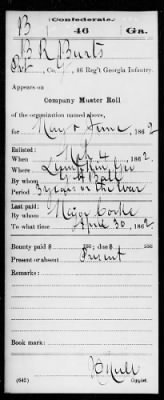 (Confederate.)
B 46 Ga.
B R Burts
Pvt, Co. , 46 Reg't Georgia Infantry.
Appears on
Company Muster Roll
of the organization named above,
for May & June, 1862
Enlisted:
When Mch 4, 1862
Where
By whom Ball
Period 3 years or the war
Last paid:
By whom Major Cooke
To what time April 30, 1862
Bounty paid $ 100; due $ 100
Present or absent Present
Remarks:
Book mark:
(642) Copyist.